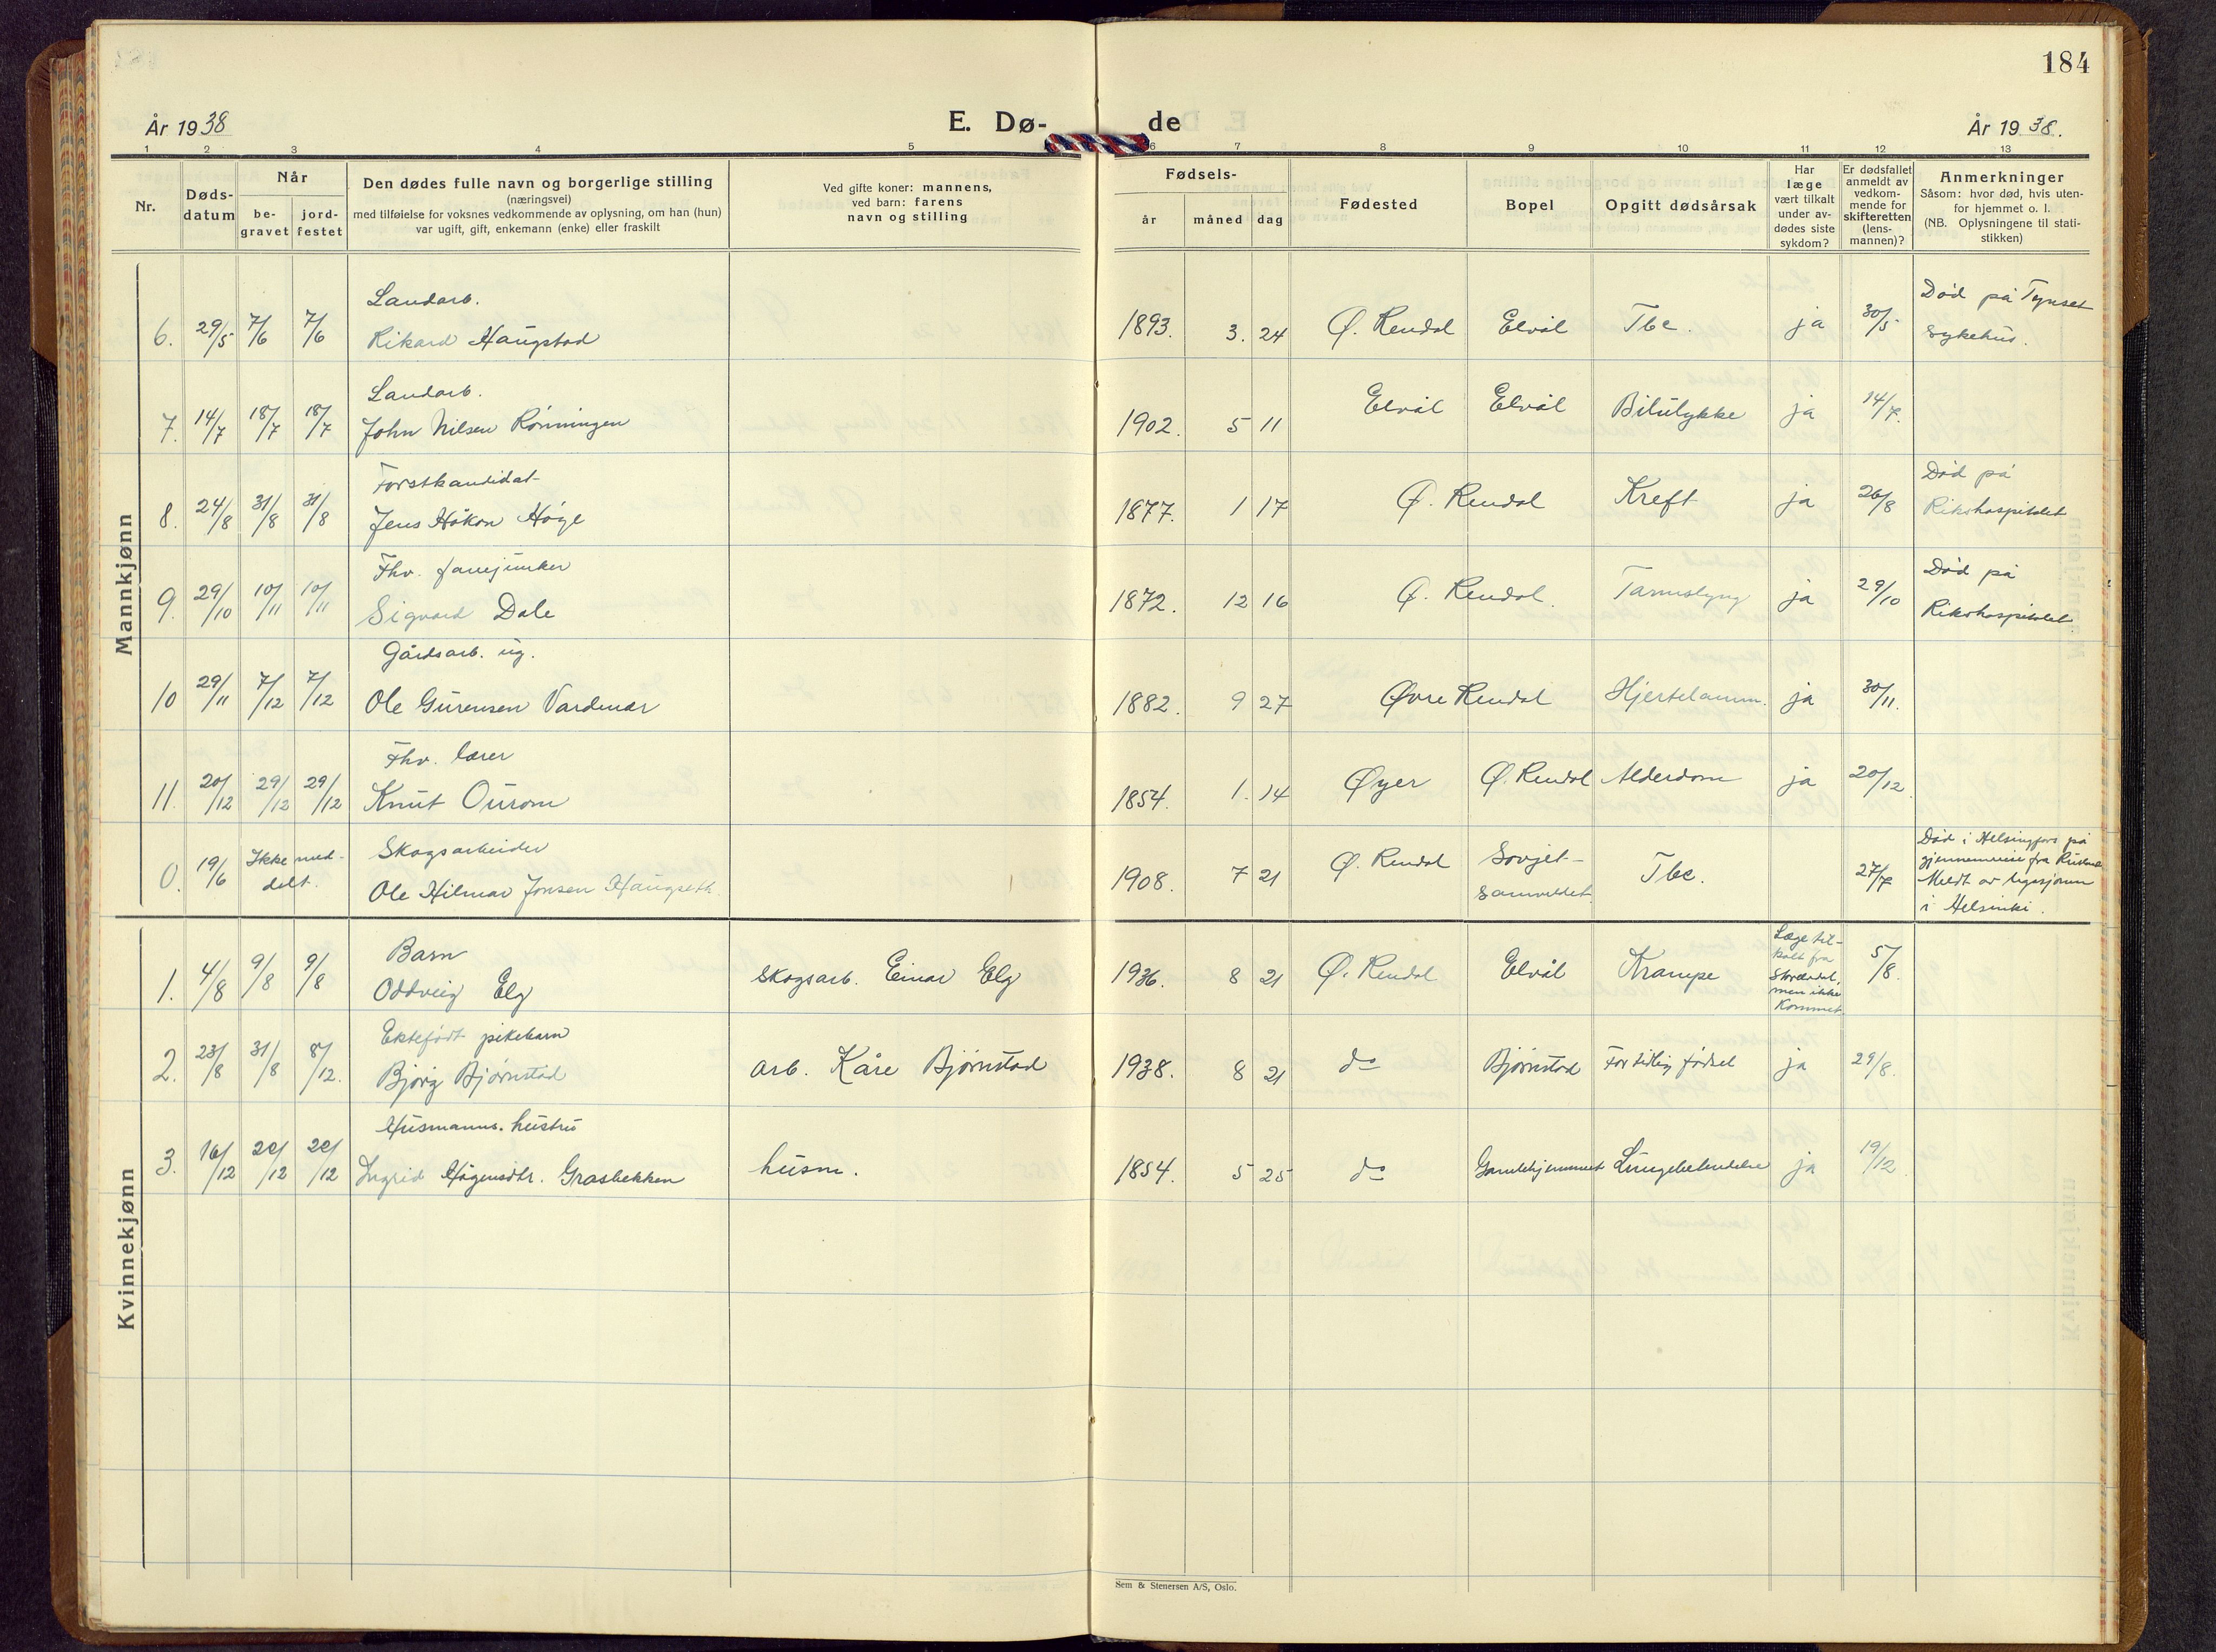 184
År 1938
E. Dø-
de
År 1938.
1 2 3 4 5 6 7 8 9 10 11 12 13
Nr.
Døds-
datum
Når
be-
gravet
jord-
festet
Den dødes fulle navn og borgerlige stilling
(næringsvei)
med tilføielse for voksnes vedkommende av oplysning, om han (hun)
var ugift, gift, enkemann (enke) eller fraskilt
Ved gifte koner: mannens,
ved barn: farens
navn og stilling
Fødsels-
år
måned
dag
Fødested
Bopel
Opgitt dødsårsak
Har
læge
vært tilkalt
under av-
dødes siste
sykdom?
Er dødsfallet
anmeldt av
vedkom-
mende for
skifteretten
(lens-
mannen)?
Anmerkninger
Såsom: hvor død, hvis uten-
for hjemmet o. l.
(NB. Oplysningene til stati-
stikken)
Mannkjønn
Landarb.
6. 29/5 7/6 7/6 Rikard Haugstad 1893. 3. 24 Ø. Rendal Elvål Tbc. ja 30/5
Død på Tynset
sykehus.
Landarb.
7. 14/7 18/7 18/7 John Nilsen Rønningen 1902. 5 11 Elvål Elvål Bilulykke ja 14/7.
Forstkandidat
8. 24/8 31/8 31/8 Jens Håkon Høye 1877. 1 17 Ø. Rendal Kreft ja 26/8
Død på
Rikshospitalet
Fhv. fanejunker
9. 29/10 10/11 10/11 Sigvard Dale 1872. 12 16 Ø. Rendal. Tarmslyng ja 29/10
Død på
Rikshospitalet
Gårdsarb. ug.
10 29/11 7/12 7/12 Ole Gurensen Vardmar 1882. 9 27 Øvre Rendal Hjertelamm. ja 30/11.
Fhv. lærer
11. 20/12 29/12 29/12 Knut Ourom 1854. 1. 14 Øyer Ø. Rendal Alderdom ja 20/12.
Skogsarbeider
0. 19/6 Ikke med-
delt.
Ole Hilmar Jonsen Haugseth. 1908. 7 21 Ø. Rendal Sovjet-
samveldet Tbc. 27/7
Død i Helsingfors på
gjennemreise fra
Meldt av legasjonen
i Helsinki.
Kvinnekjønn
Barn
1. 4/8 9/8 9/8 Oddveig Elg Skogsarb. Einar Elg 1936. 8 21 Ø. Rendal Elvål Krampe
Læge til-
kalt fra
Storelvdal,
men ikke
kommet
5/8.
Ektefødt pikebarn
2. 23/8 31/8 8/12. Bjørg Bjørnstad arb. Kåre Bjørnstad 1938. 8 21 do Bjørnstad For tidlig fødsel ja 29/8.
Husmanns. hustru
3. 16/12 29/12 29/12 Ingrid Hågensdtr. Grasbekken husm. 1854. 5 25 do Gamlehjemmet Lungebetendelse ja 19/12.
Sem & Stenersen A/S, Oslo.